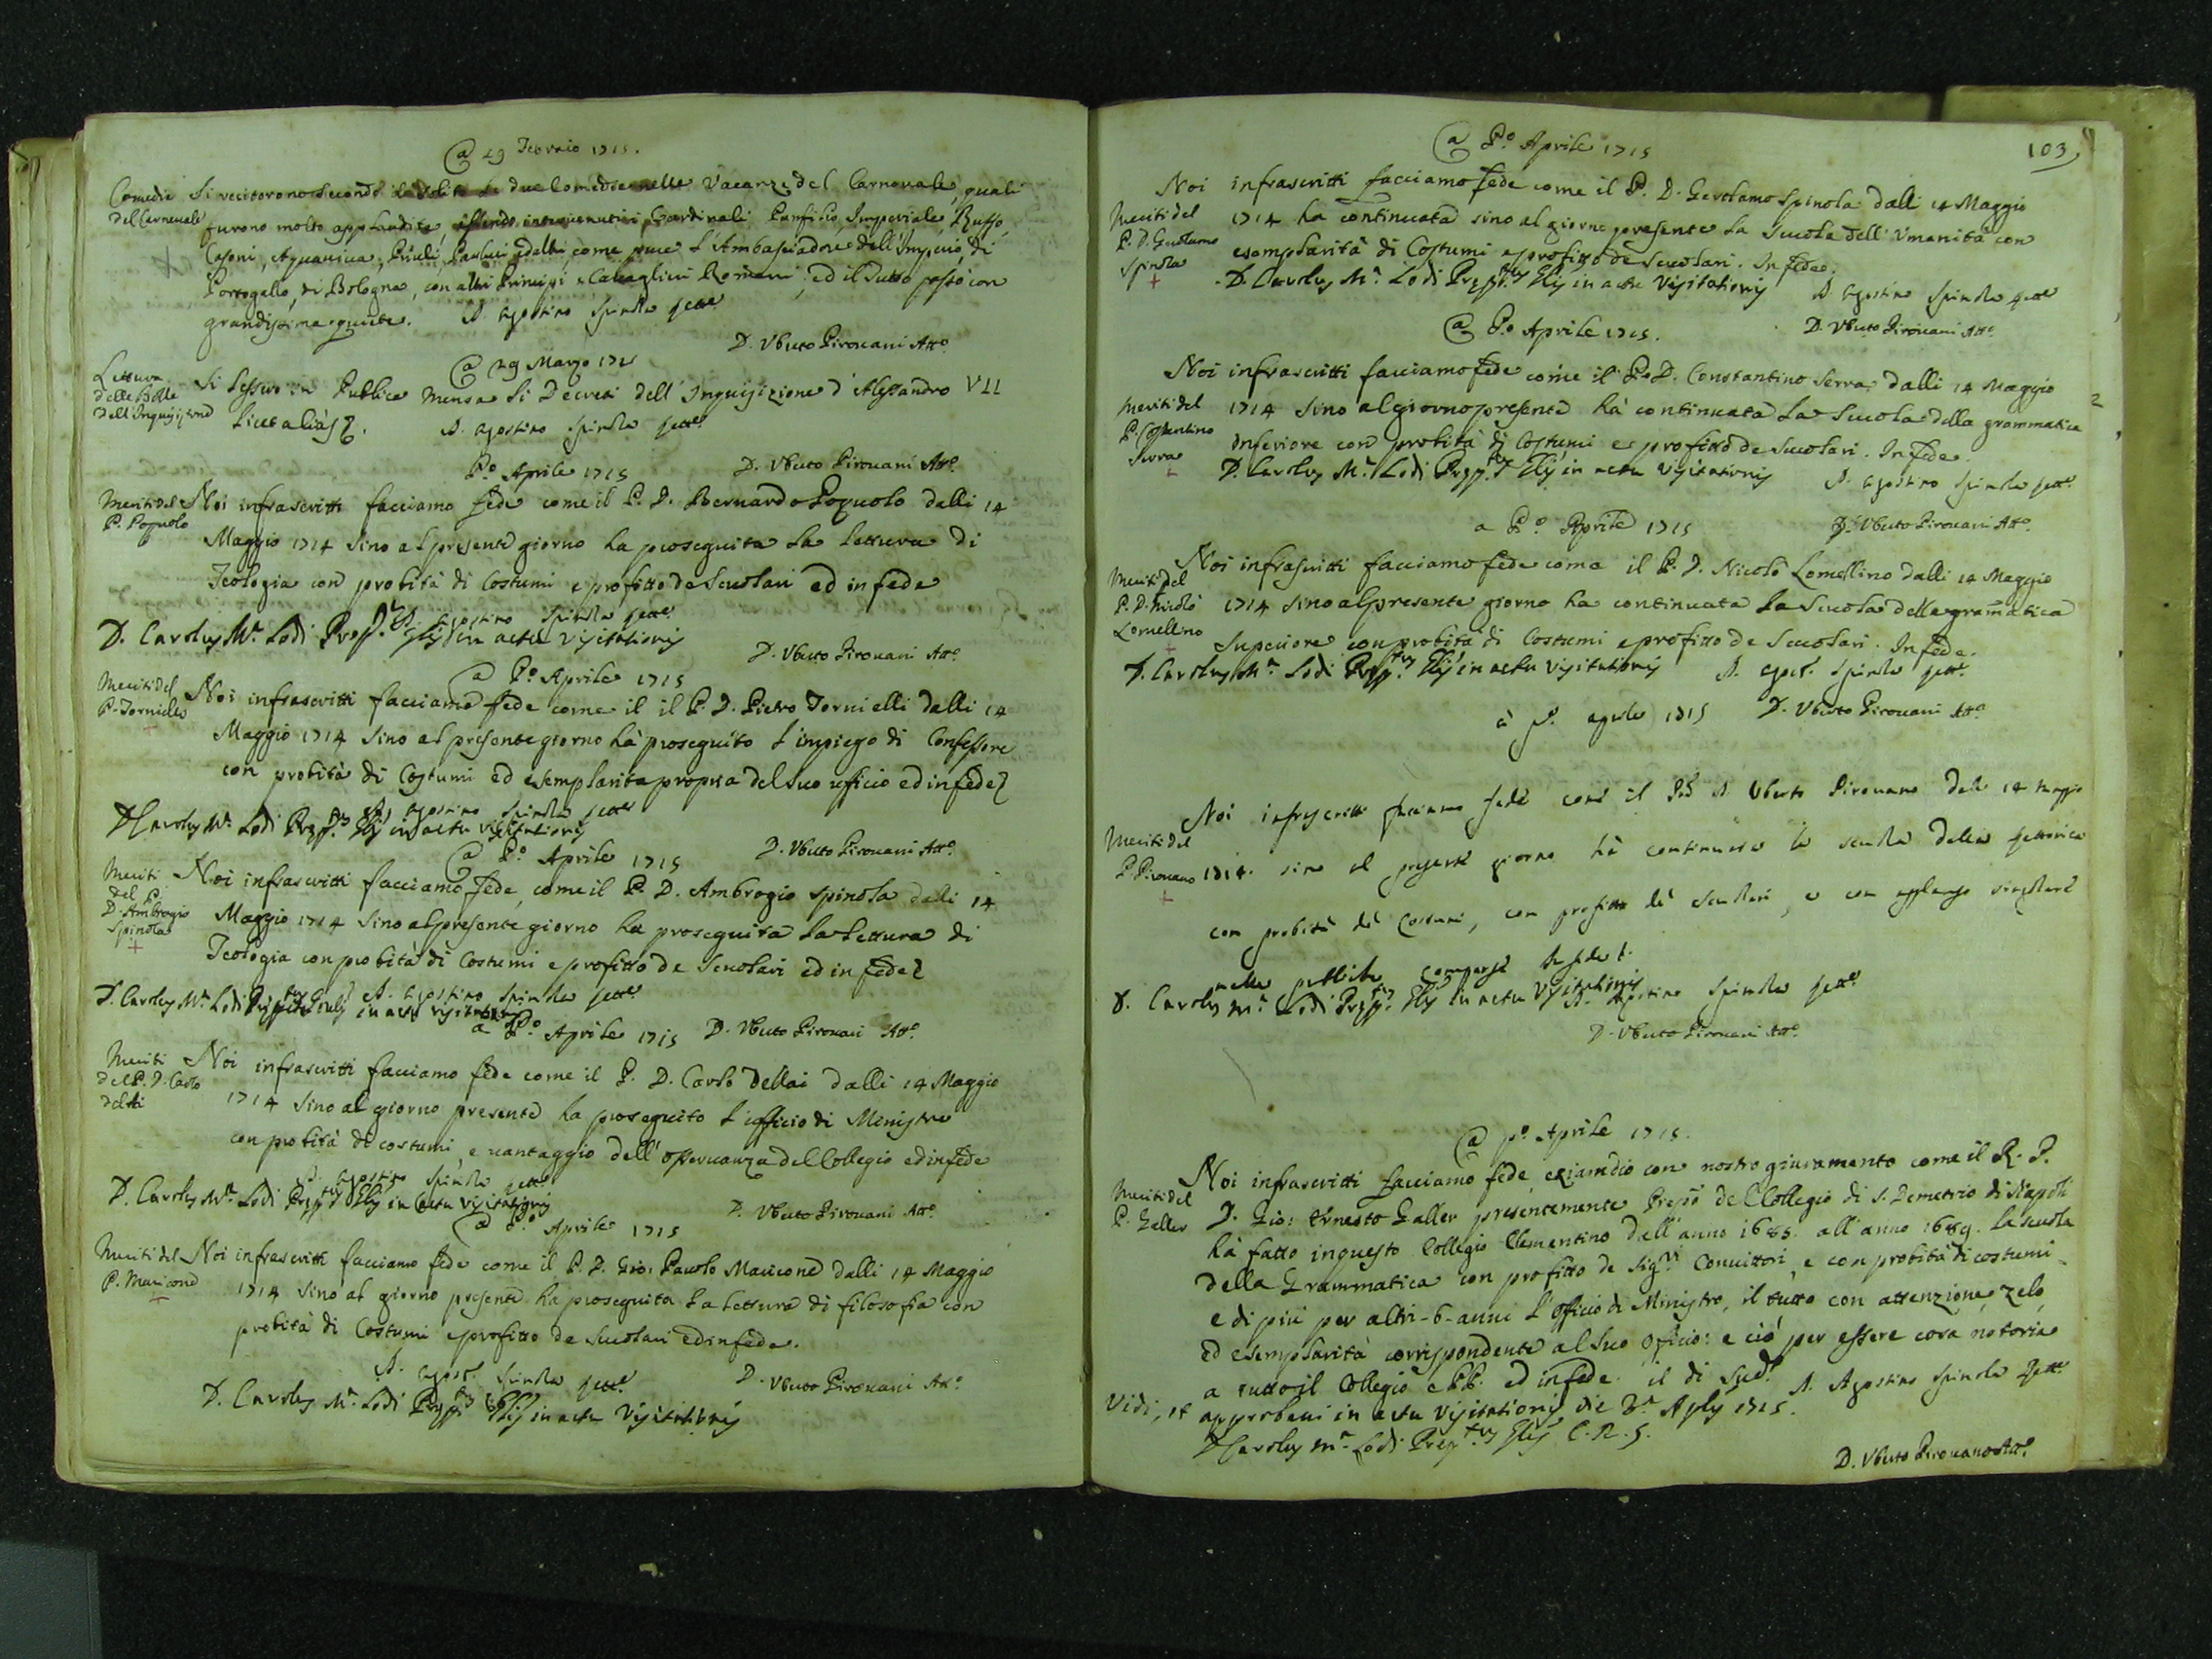 @ 29 Febraio 1715.
Comedie
del Carnevale
Si recitorono secondo il solito le due Comedie nelle Vacanze del Carnovale, quali
furono molto applaudite, essendo intervenuti i Cardinali Panfilio, Imperiale, Ruffo,
Casoni, Aquaviva, Priuli, Paulucci ed altri, come pure l'Ambasciadore dell'Imperio, di
Portogallo, di Bologna, con altri Principi e Cavaglieri Romani, ed il tutto passò con
grandissima quiete. D. Agostino Spinola Rett.e
D. Uberto Pirovani Att.o
@ 29 Marzo 171
Lettura
delle Bolle
dell'Inquisizione
Si lessero in Publica Mensa li Decreti dell'Inquisizione d'Alessandro VII
sicut aliàs. D. Agostino Spinola Rett.e
D. Uberto Pirovani Att.o
P.o Aprile 1715
Meriti del
P. Pozuolo
Noi infrascritti facciamo fede come il P. D. Bernardo Pozuolo dalli 14
Maggio 1714 sino al presente giorno ha proseguita la lettura di
Teologia con probità di Costumi e profitto de Scuolari ed in fede
D. Agostino Spinola Rett.e
D. Carolus M.a Lodi Prep.tus Glis in actu Visitationis
D. Uberto Pirovani Att.o
@ P.o Aprile 1715
Meriti del
P. Tornielli
Noi infrascritti facciamo fede come il il P. D. Pietro Tornielli dalli 14
Maggio 1714 sino al presente giorno hà proseguito l'impiego di Confessore
con probità di Costumi ed esemplarità propria del suo ufficio ed in fede
D. Agostino Spinola Rett.e
D. Carolus M.a Lodi Prep.tus Glis in actu Visitationis
D. Uberto Pirovani Att.o
@ P.o Aprile 1715
Meriti
del P.
D. Ambrogio
Spinola
Noi infrascritti facciamo fede, come il P. D. Ambrogio Spinola dalli 14
Maggio 1714 sino al presente giorno ha proseguita la Lettura di
Teologia con probità di Costumi e profitto de Scuolari ed in fede
D. Agostino Spinola Rett.e
D. Carolus M.a Lodi in actu Visitationis
a P.o Aprile 1715 D. Uberto Pirovani Att.o
Meriti
del P. D. Carlo
dellai
Noi infrascritti facciamo fede come il P. D. Carlo Dellai dalli 14 Maggio
1714 sino al giorno presente ha proseguito l'ufficio di Ministro
con probità di costumi, e vantaggio dell'osservanza del Collegio ed in fede
D. Agostino Spinola Rett.e
D. Carolus M.a Lodi Prep.tus Glis in actu Visitationis
D. Uberto Pirovani Att.o
@ P.o Aprile 1715
Meriti del
P. Maricone
Noi infrascritti facciamo fede come il P. D. Gio: Paolo Maricone dalli 14 Maggio
1714 sino al giorno presente ha proseguita la Lettura di filosofia con
probità di Costumi e profitto de Scuolari ed in fede.
D. Agost. Spinola Rett.e
D. Uberto Pirovani Att.o
D. Carolus M.a Lodi Prep.tus Glis in actu Visitationis
103
@ P.o Aprile 1715
Meriti del
P. D. Gerolamo
Spinola
Noi infrascritti facciamo fede come il P. D. Gerolamo Spinola dalli 14 Maggio
1714 ha continuata sino al giorno presente la Scuola dell'Umanità con
esemplarità di Costumi e profitto de Scuolari. In fede.
D. Carolus M.a Lodi Prep.tus Glis in actu Visitationis D. Agostino Spinola Rett.e
@ P.o Aprile 1715. D. Uberto Pirovani Att.o
Meriti del
P. Costantino
Serra
Noi infrascritti facciamo fede come il P. D. Constantino Serra dalli 14 Maggio
1714 sino al giorno presente hà continuata la Scuola della grammatica
Inferiore con probità di Costumi e profitto de Scuolari. In fede.
D. Carolus M.a Lodi Prep.tus Glis in actu Visitationis D. Agostino Spinola Rett.e
a P.o Aprile 1715 D. Uberto Pirovani Att.o
Meriti del
P. D. Nicolò
Lomellino
Noi infrascritti facciamo fede come il P. D. Nicolò Lomellino dalli 14 Maggio
1714 sino al presente giorno ha continuata la Scuola della gramatica
Superiore con probità di Costumi e profitto de Scuolari. In fede.
D. Carolus M.a Lodi Prep.tus Glis in actu Visitationis D. Agost. Spinola Rett.e
à p.o aprile 1715 D. Uberto Pirovani Att.o
Meriti del
P. Pirovano
Noi infrascritti facciamo fede come il Pre D. Uberto Pirovano dalli 14 Maggio
1714. sino al presente giorno hà continuata la scuola della Rettorica
con probità de Costumi, con profitto de Scuolari, e con applauso singolare
nelle publiche comparse In fede
D. Carolus M.a Lodi Prep.tus Glis in actu Visitationis D. Agostino Spinola Rett.e
D. Uberto Pirovani Att.o
@ p.o Aprile 1715.
Meriti del
P. Galler
Noi infrascritti facciamo fede eziandio con nostro giuramento come il R. P.
D. Gio: Ernesto Galler presentemente Prepo del Collegio di S. Demetrio di Napoli
hà fatto in questo Collegio Clementino dell'anno 1685. all'anno 1689. la scuola
della Grammatica con profitto de Sig.ri Convittori, e con probità di costumi
e di più per altri -6- anni l'Officio di Ministro, il tutto con attenzione, zelo,
ed esemplarità corrispondente al suo Oficio: e ciò per essere cosa notoria
a tutto il Collegio e PP. ed in fede il dì sud.o D. Agostino Spinola Rett.e
Vidi, et approbavi in actu Visitationis die 2.a Aplis 1715.
D. Carolus M.a Lodi Prep.tus Glis C. R. S.
D. Uberto Pirovano Att.o